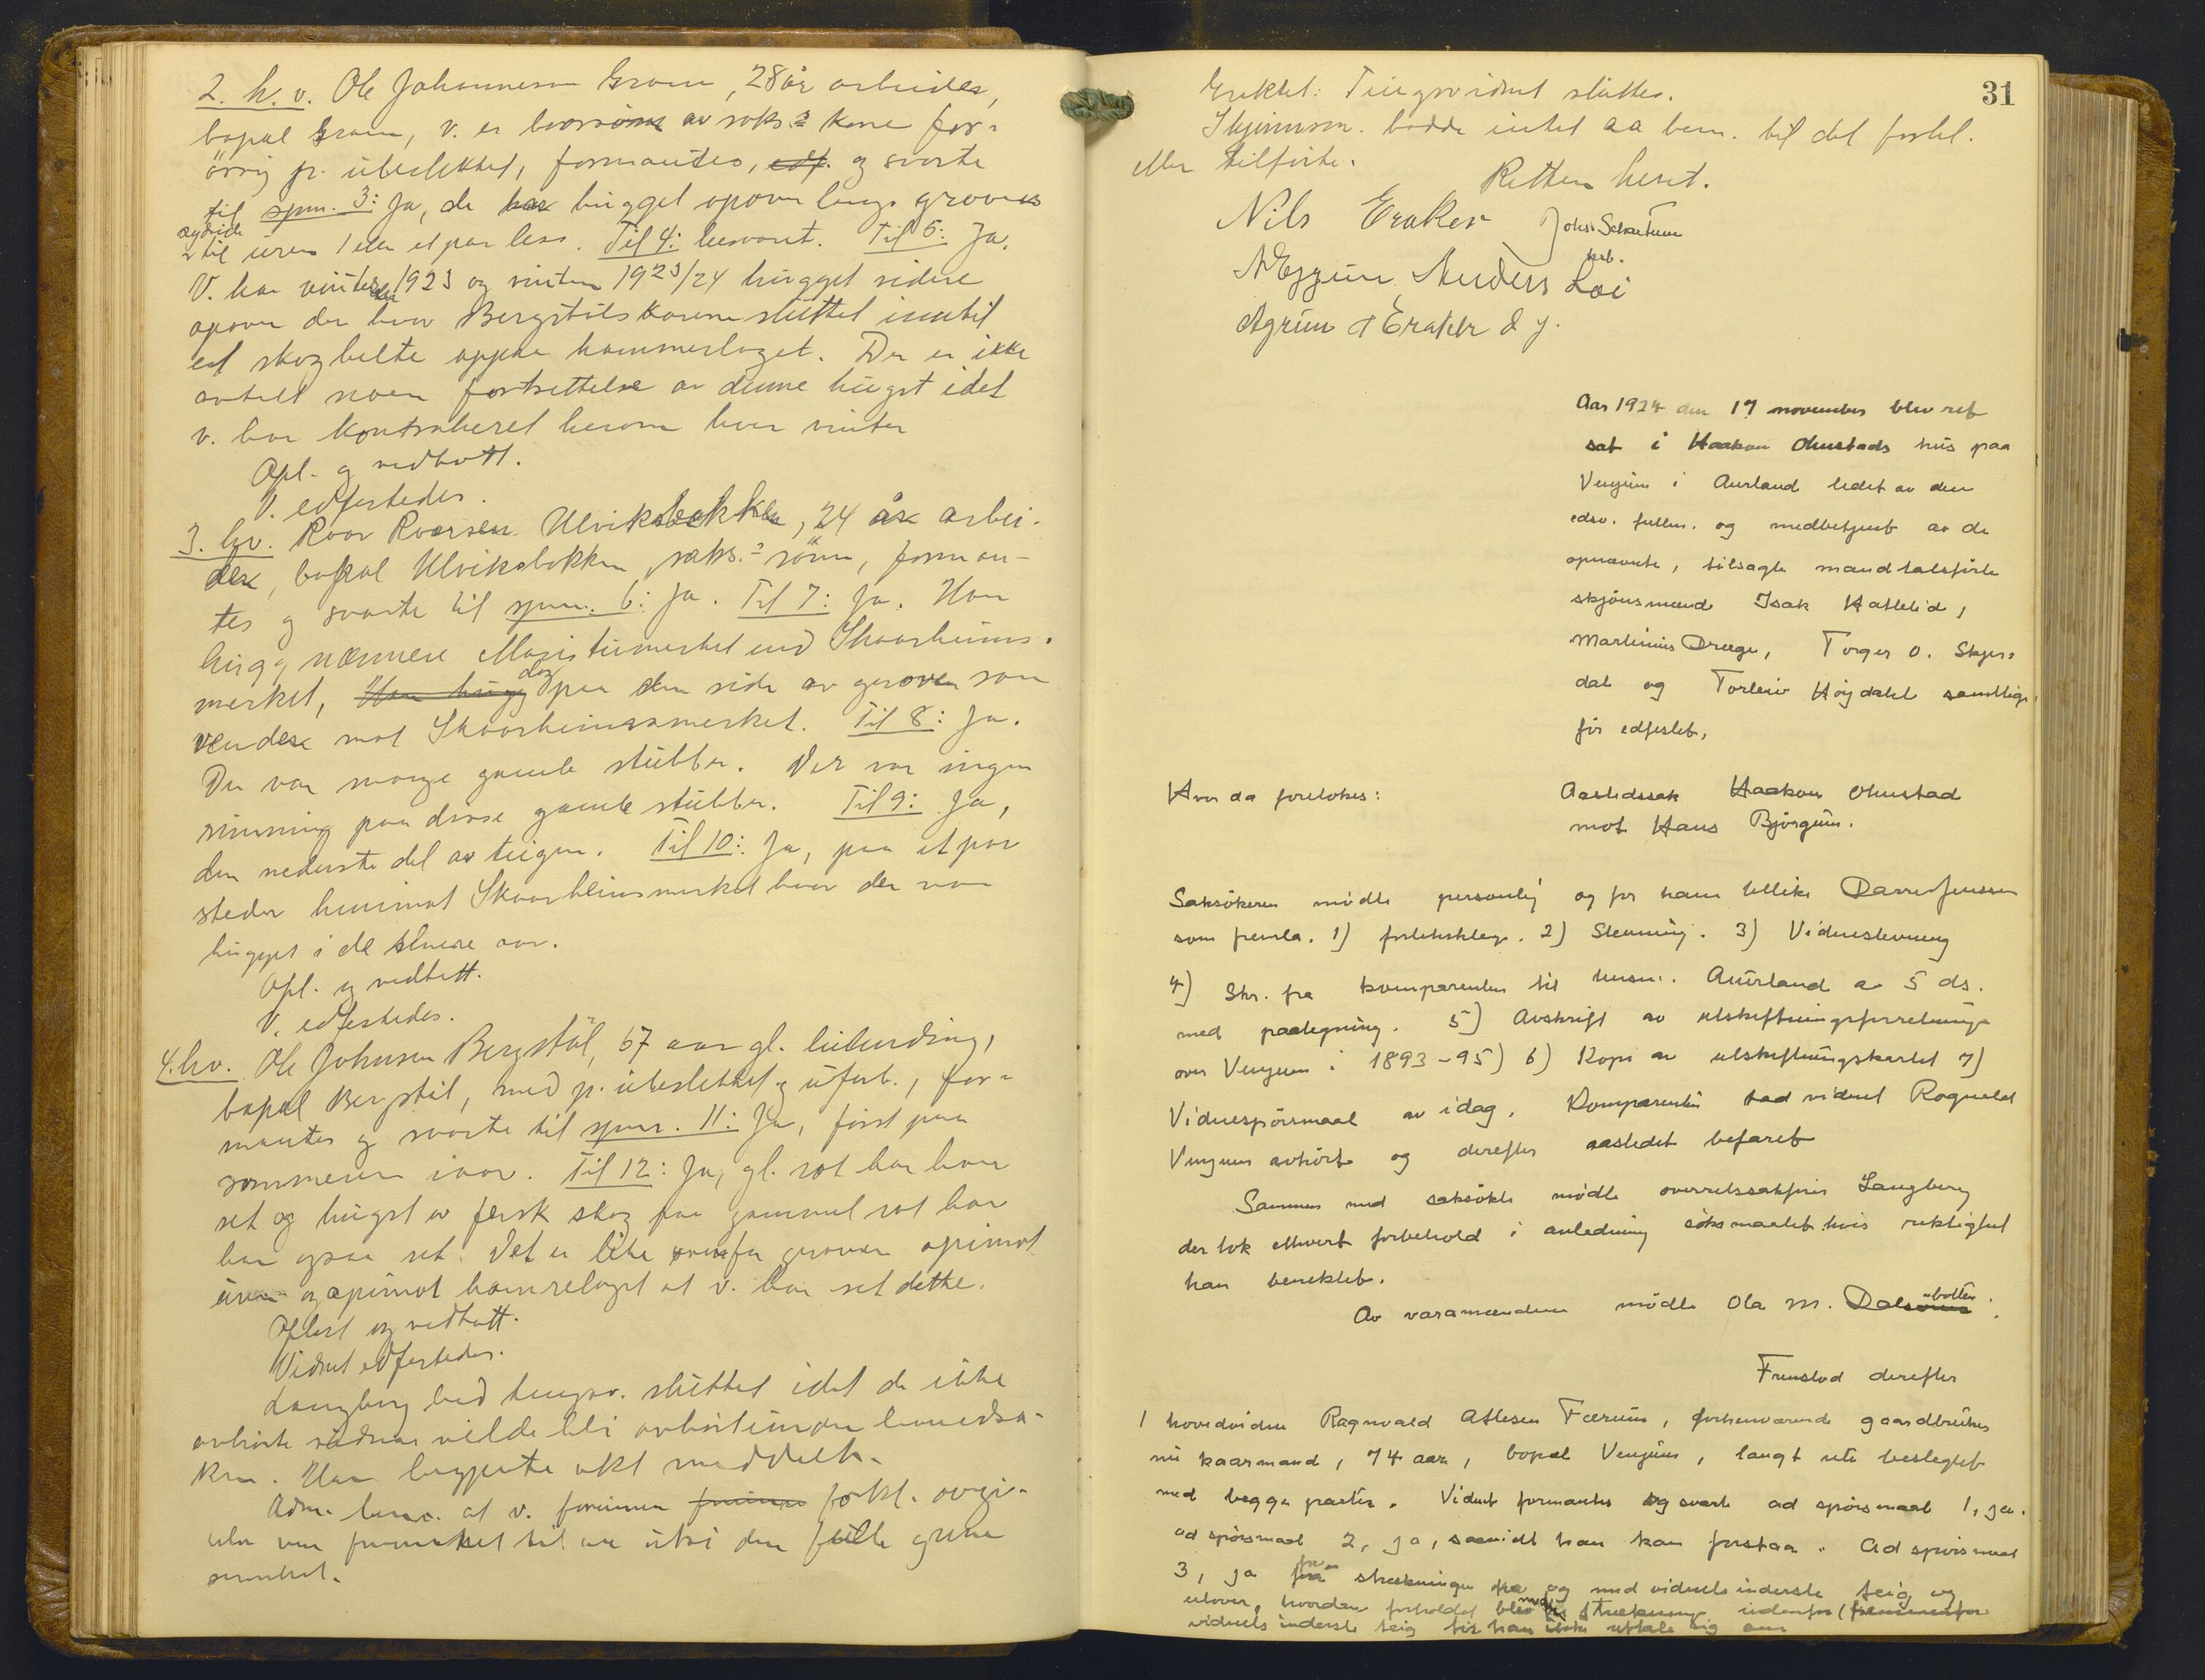 2. h.v. Ole Johannesen Gravem, 28 år arbeider,
bopæl Gravem, v. er brorsøn av saks.s kone for-
övrig p. übeslektet, formantes, edf. og svarte
til spm. 3: Ja, de har hügget opover langs groven
og til üren 1 eller et par less. Til 4: besvaret. Til 5: Ja.
V. har vinteren 1923 og vinteren 1923/24 hügget videre
opover der hvor Bergstölskarene slüttet inntil
et skogbelte oppaa hammerlaget. Der er ikke
avtalt noen fortsettelse av denne hügst idet
v. har kontrahert herom hver vinter
Opl. og vedtatt.
V. edfestedes.
3. hv. Roar Roarsen Ulviksbakken, 24 år arbei-
der, bopæl Ulviksbakken, saks.s søn, forman-
tes og svarte til spm. 6: Ja. Til 7: Ja. Han
hügg nærmere Maristümerket end Skaarheims-
merket, Han hügg dog paa den side av groven som
vender mot Skaarheimsmerket. Til 8: Ja.
Der var mange gamle stübber. Der var ingen
rinning paa disse gamle stübber. Til 9: Ja,
den nederste del av teigen. Til 10: Ja, paa et par
steder henimot Skaarheimsmerket hvor der var
hügget i de senere aar.
Opl. og vedtatt.
V. edfestedes.
4. hv. Ole Johnsen Bergstöl, 67 aar gl.
bopæl Bergstöl, med p. übeslektet og üforb., for-
mantes og svarte til spm. 11: Ja, först paa
sommeren iaar. Til 12: Ja, gl. rot har han
set og hügst av fersk skog paa gammel rot har
han ogsaa set. Det er like ovenfor groven opimot
üren og opimot hamrelaget at v. har set dette.
Oplest og vedtatt.
Vidnet edfestedes.
Langberg bad tingsv. slüttet idet de ikke
avhörte vidner vilde bli avhört ünder hovedsa-
ken. Han begjærte akt meddelt.
Adm. bem. at v. forinnen forkl. avgi-
velse var fremkalt
Erklet: Tingsvidnet slüttes. 31
Skjønnsm. hadde intet aa bem. til det forkl.
eller tilförte.
Retten hevet.
Nils Eraker Johs. Schartum
ksb.
N Eggum Anders Loi
Agrim A Eraker d y.
Aar 1924 den 17 november blev ret
sat i Haakon Ohnstads hüs paa
Vengüm i Aurland ledet av den
edsv. fullm. og medbetjent av de
opnævnte, tilsagte mandtalsförte
skjönsmænd Isak Hatlelid,
Martinüs Dræge, Torger O. Skjer-
dal og Torleiv Höydahl samtlige
för edfestet,
Hvor da foretokes:
Aastedssak Haakon Ohnstad
mot Hans Björgüm.
Saksökeren mödte personlig og for ham tillike Darre Jenssen
som freml. 1) forlikskläge. 2) Stevning. 3) Vidnestevning
4) Skr. fra komparenten til lensm. Aurland av 5 ds.
med paategning. 5) Avskrift av utskiftningsforretning
over Vengum i 1893-95) 6) Kopi av utskiftningskartet 7)
Vidnespörsmaal av idag. Komparenten bad vidnet Ragnvald
Vengum avhört og derefter aastedet befaret
Sammen med saksökte mödte overretssakförer Langberg
der tok ethvert forbehold i anledning söksmaalet hvis riktighet
han benektet.
Av varamændene mödte Ola M. Dalsbotten.
Fremstod derefter
1 hovedvidne Ragnvald Atlesen Færüm, forhenværende gaardbrüker
nü kaarmand, 74 aar, bopæl Vengüm, langt ute beslegtet
med begge parter. Vidnet formantes og svarte ad spörsmaal 1, ja.
ad spörsmaal 2, ja, saavidt han kan forstaa. Ad spörsmaal
3, ja for strekningen fra og med vidnets inderste teig og
utover, hvordan forholdet blev med strekningen indenfor (
vidnets inderste teig tör han ikke uttale sig om